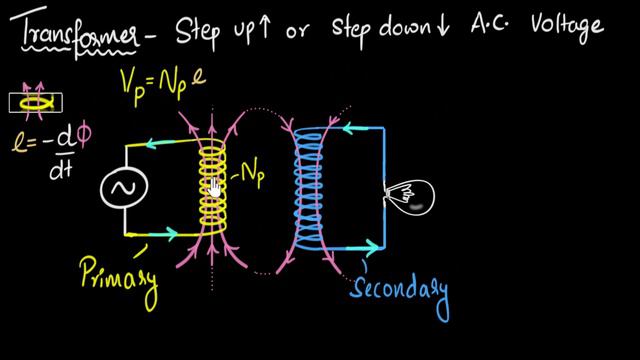 Transformer - Step up↑ or step down↓ A.C. Voltage
Vp = Np e
e = -d/dt Φ
~
-Np
Primary
Secondary